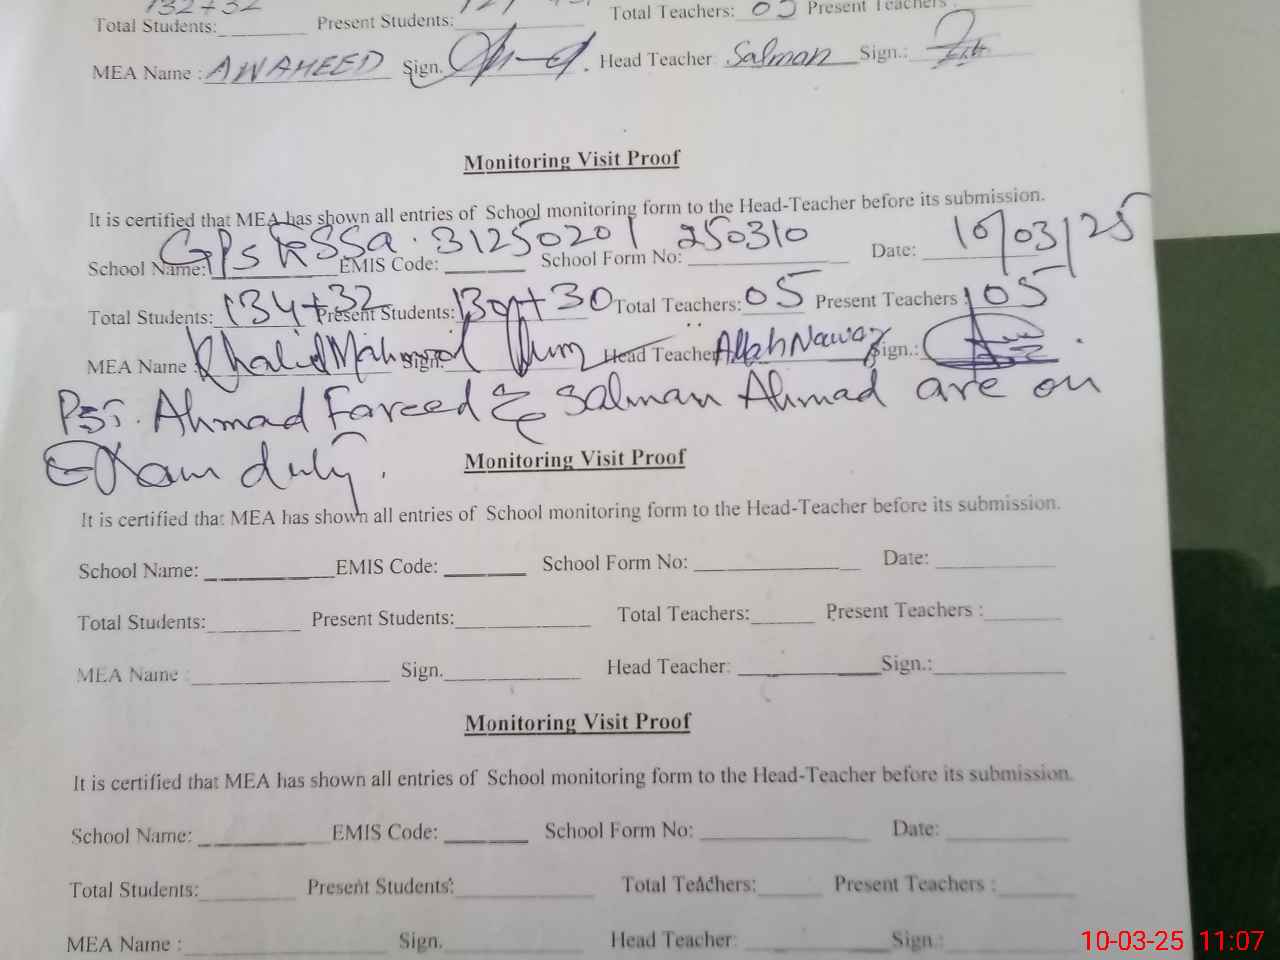 132+32
Total Students: Present Students: Total Teachers: 05 Present Teachers :
MEA Name : AWAHEED Sign. Head Teacher: Salman Sign.:
Monitoring Visit Proof
It is certified that MEA has shown all entries of School monitoring form to the Head-Teacher before its submission.
School Name: GPS Kossa. EMIS Code: 31250201 School Form No: 250310 Date: 10/03/25
Total Students: 134+32 Present Students: 130+30 Total Teachers: 05 Present Teachers : 05
MEA Name : Khalid Mahmood Sign. Head Teacher Allah Nawaz Sign.:
PST. Ahmad Fareed & Salman Ahmad are on
Exam duty.
Monitoring Visit Proof
It is certified that MEA has shown all entries of School monitoring form to the Head-Teacher before its submission.
School Name: EMIS Code: School Form No: Date:
Total Students: Present Students: Total Teachers: Present Teachers :
MEA Name : Sign. Head Teacher: Sign.:
Monitoring Visit Proof
It is certified that MEA has shown all entries of School monitoring form to the Head-Teacher before its submission.
School Name: EMIS Code: School Form No: Date:
Total Students: Present Students: Total Teachers: Present Teachers :
MEA Name : Sign. Head Teacher: Sign.:
10-03-25 11:07